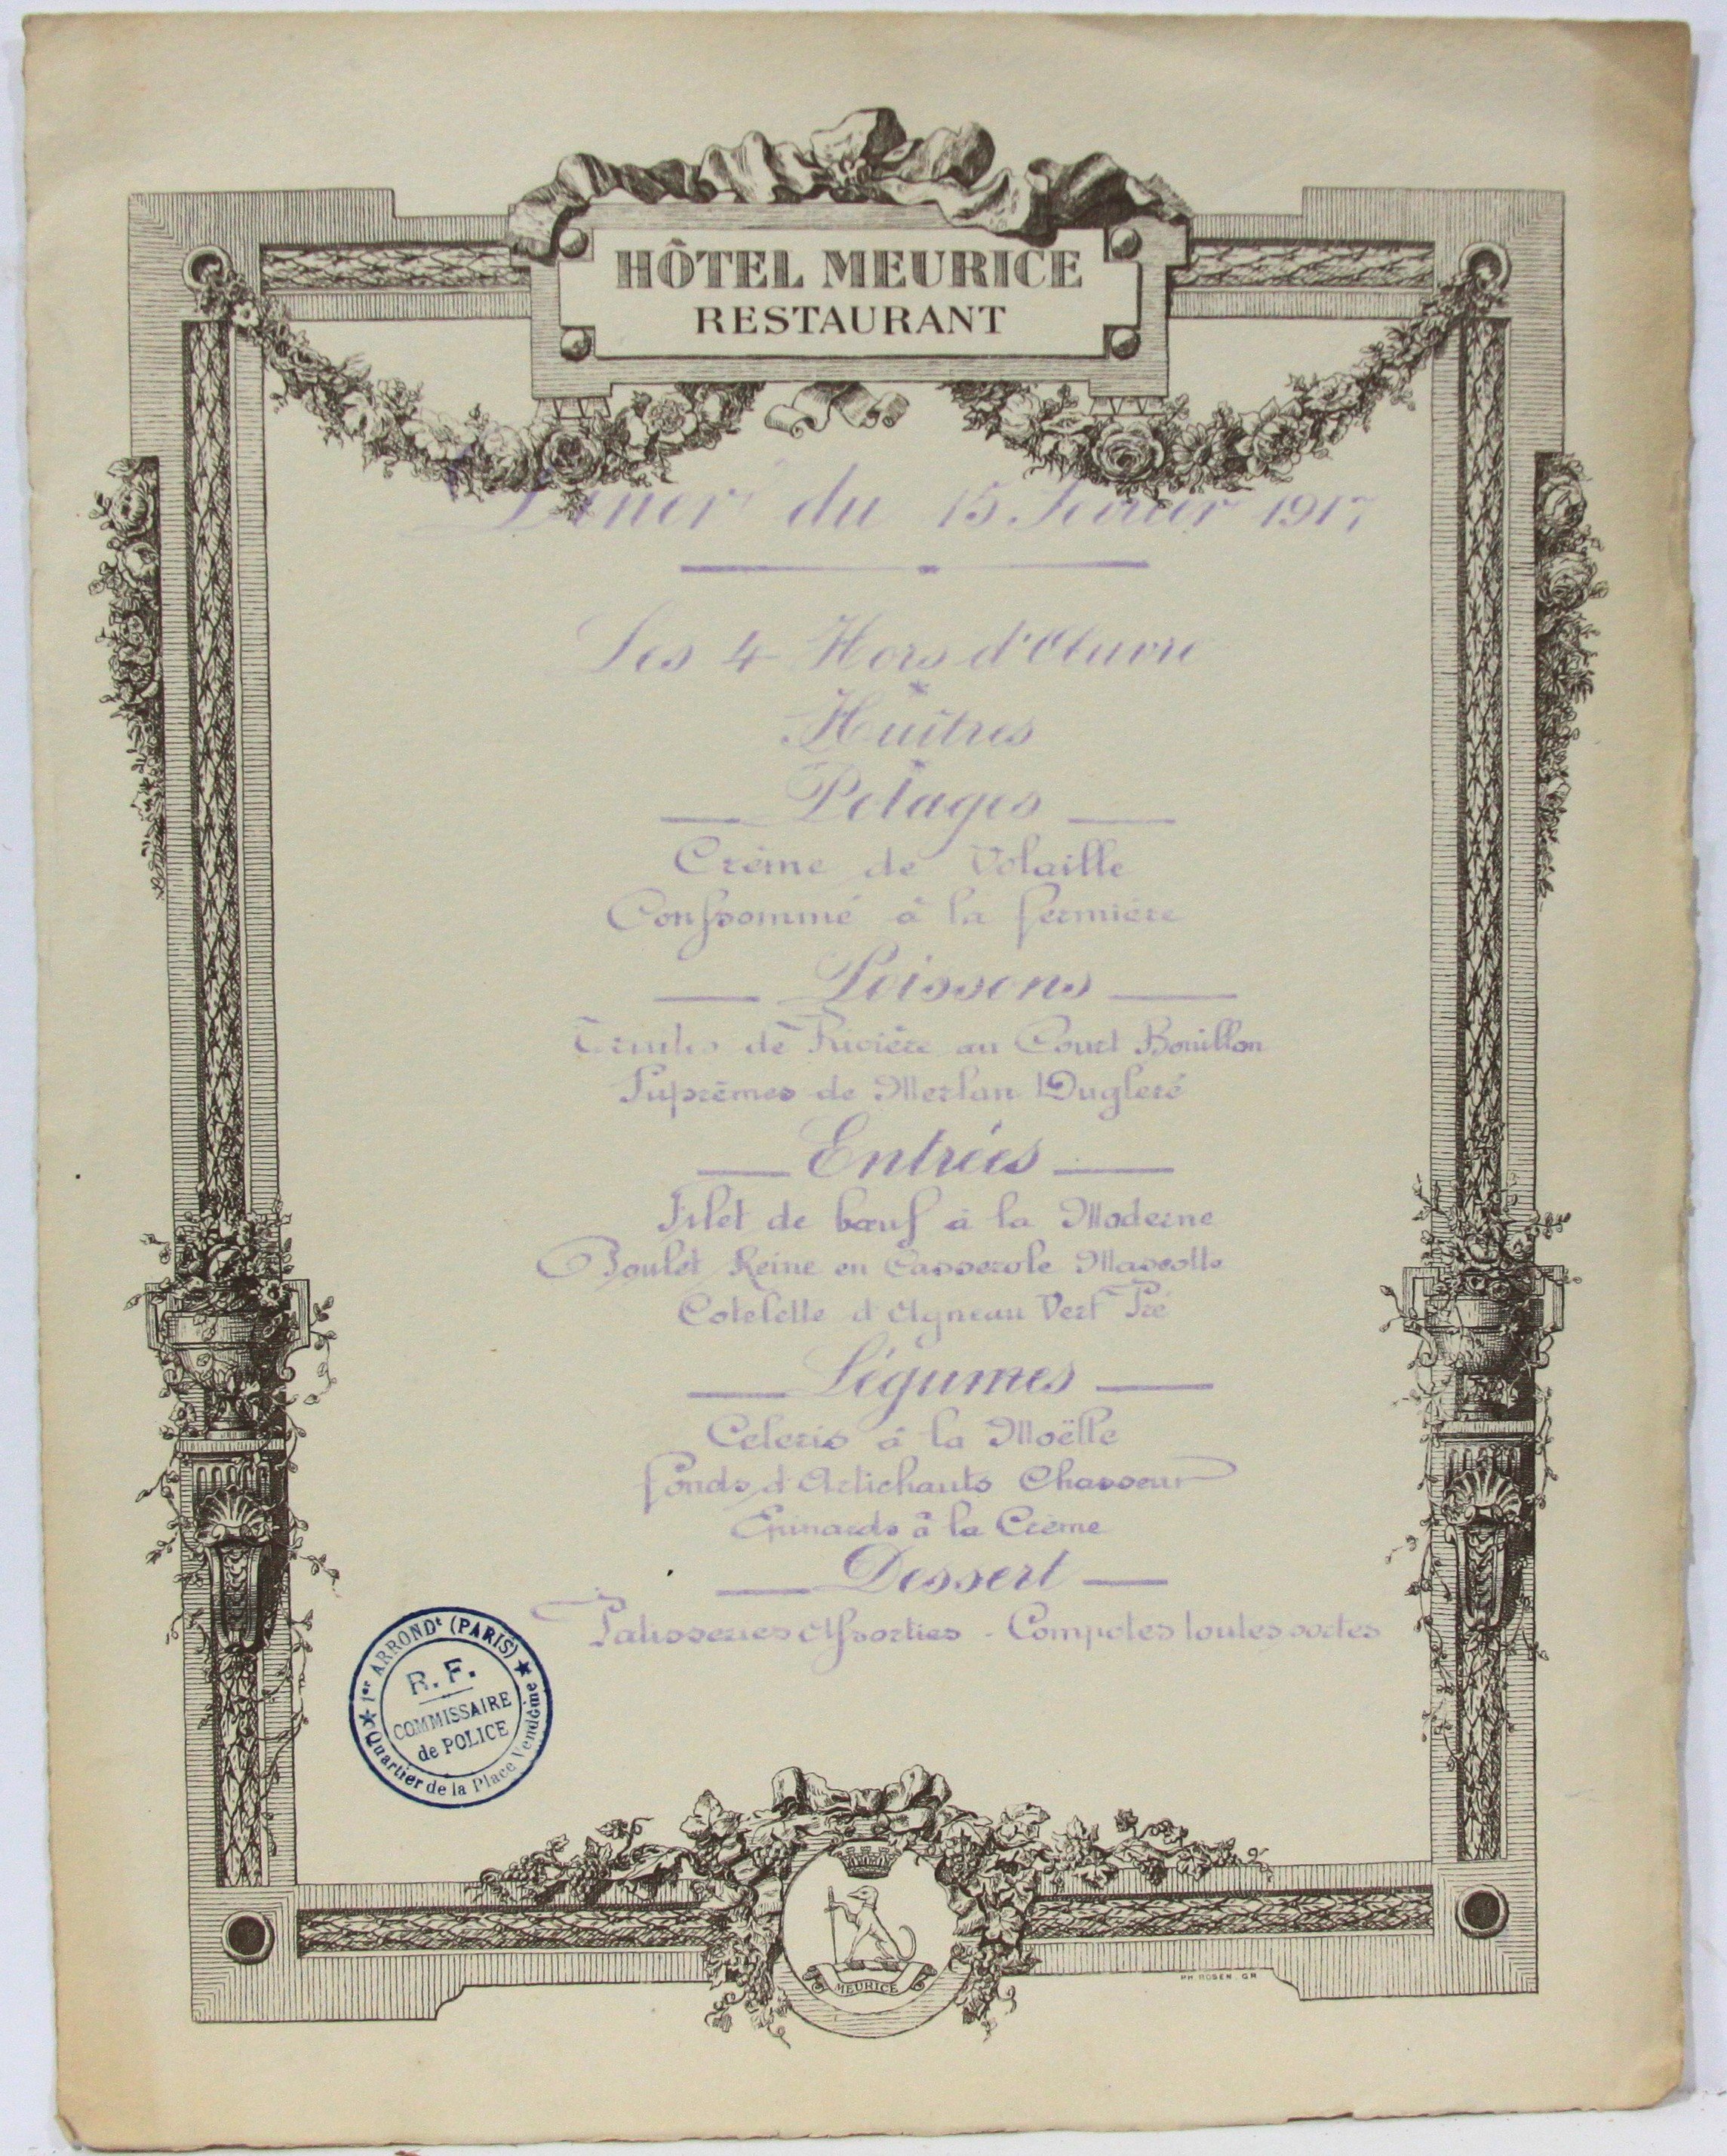 HÔTEL MEURICE
RESTAURANT
Dîner du 15 Février 1917
Les 4 Hors d'Œuvre
Huîtres
Potages
Crème de Volaille
Consommé à la fermière
Poissons
Truites de Rivière au Court Bouillon
Suprêmes de Merlan Dugleré
Entrées
Filet de bœuf à la Moderne
Poulet Reine en Casserole Mascotte
Cotelette d'Agneau Vert Pré
Légumes
Celeris à la Moëlle
fonds d'Artichauts Chasseur
Epinards à la Crème
Dessert
Patisseries Assorties - Compotes toutes sortes
1er ARRONDt (PARIS)
R. F.
COMMISSAIRE
de POLICE
Quartier de la Place Vendôme
MEURICE
PH. ROSEN. GR